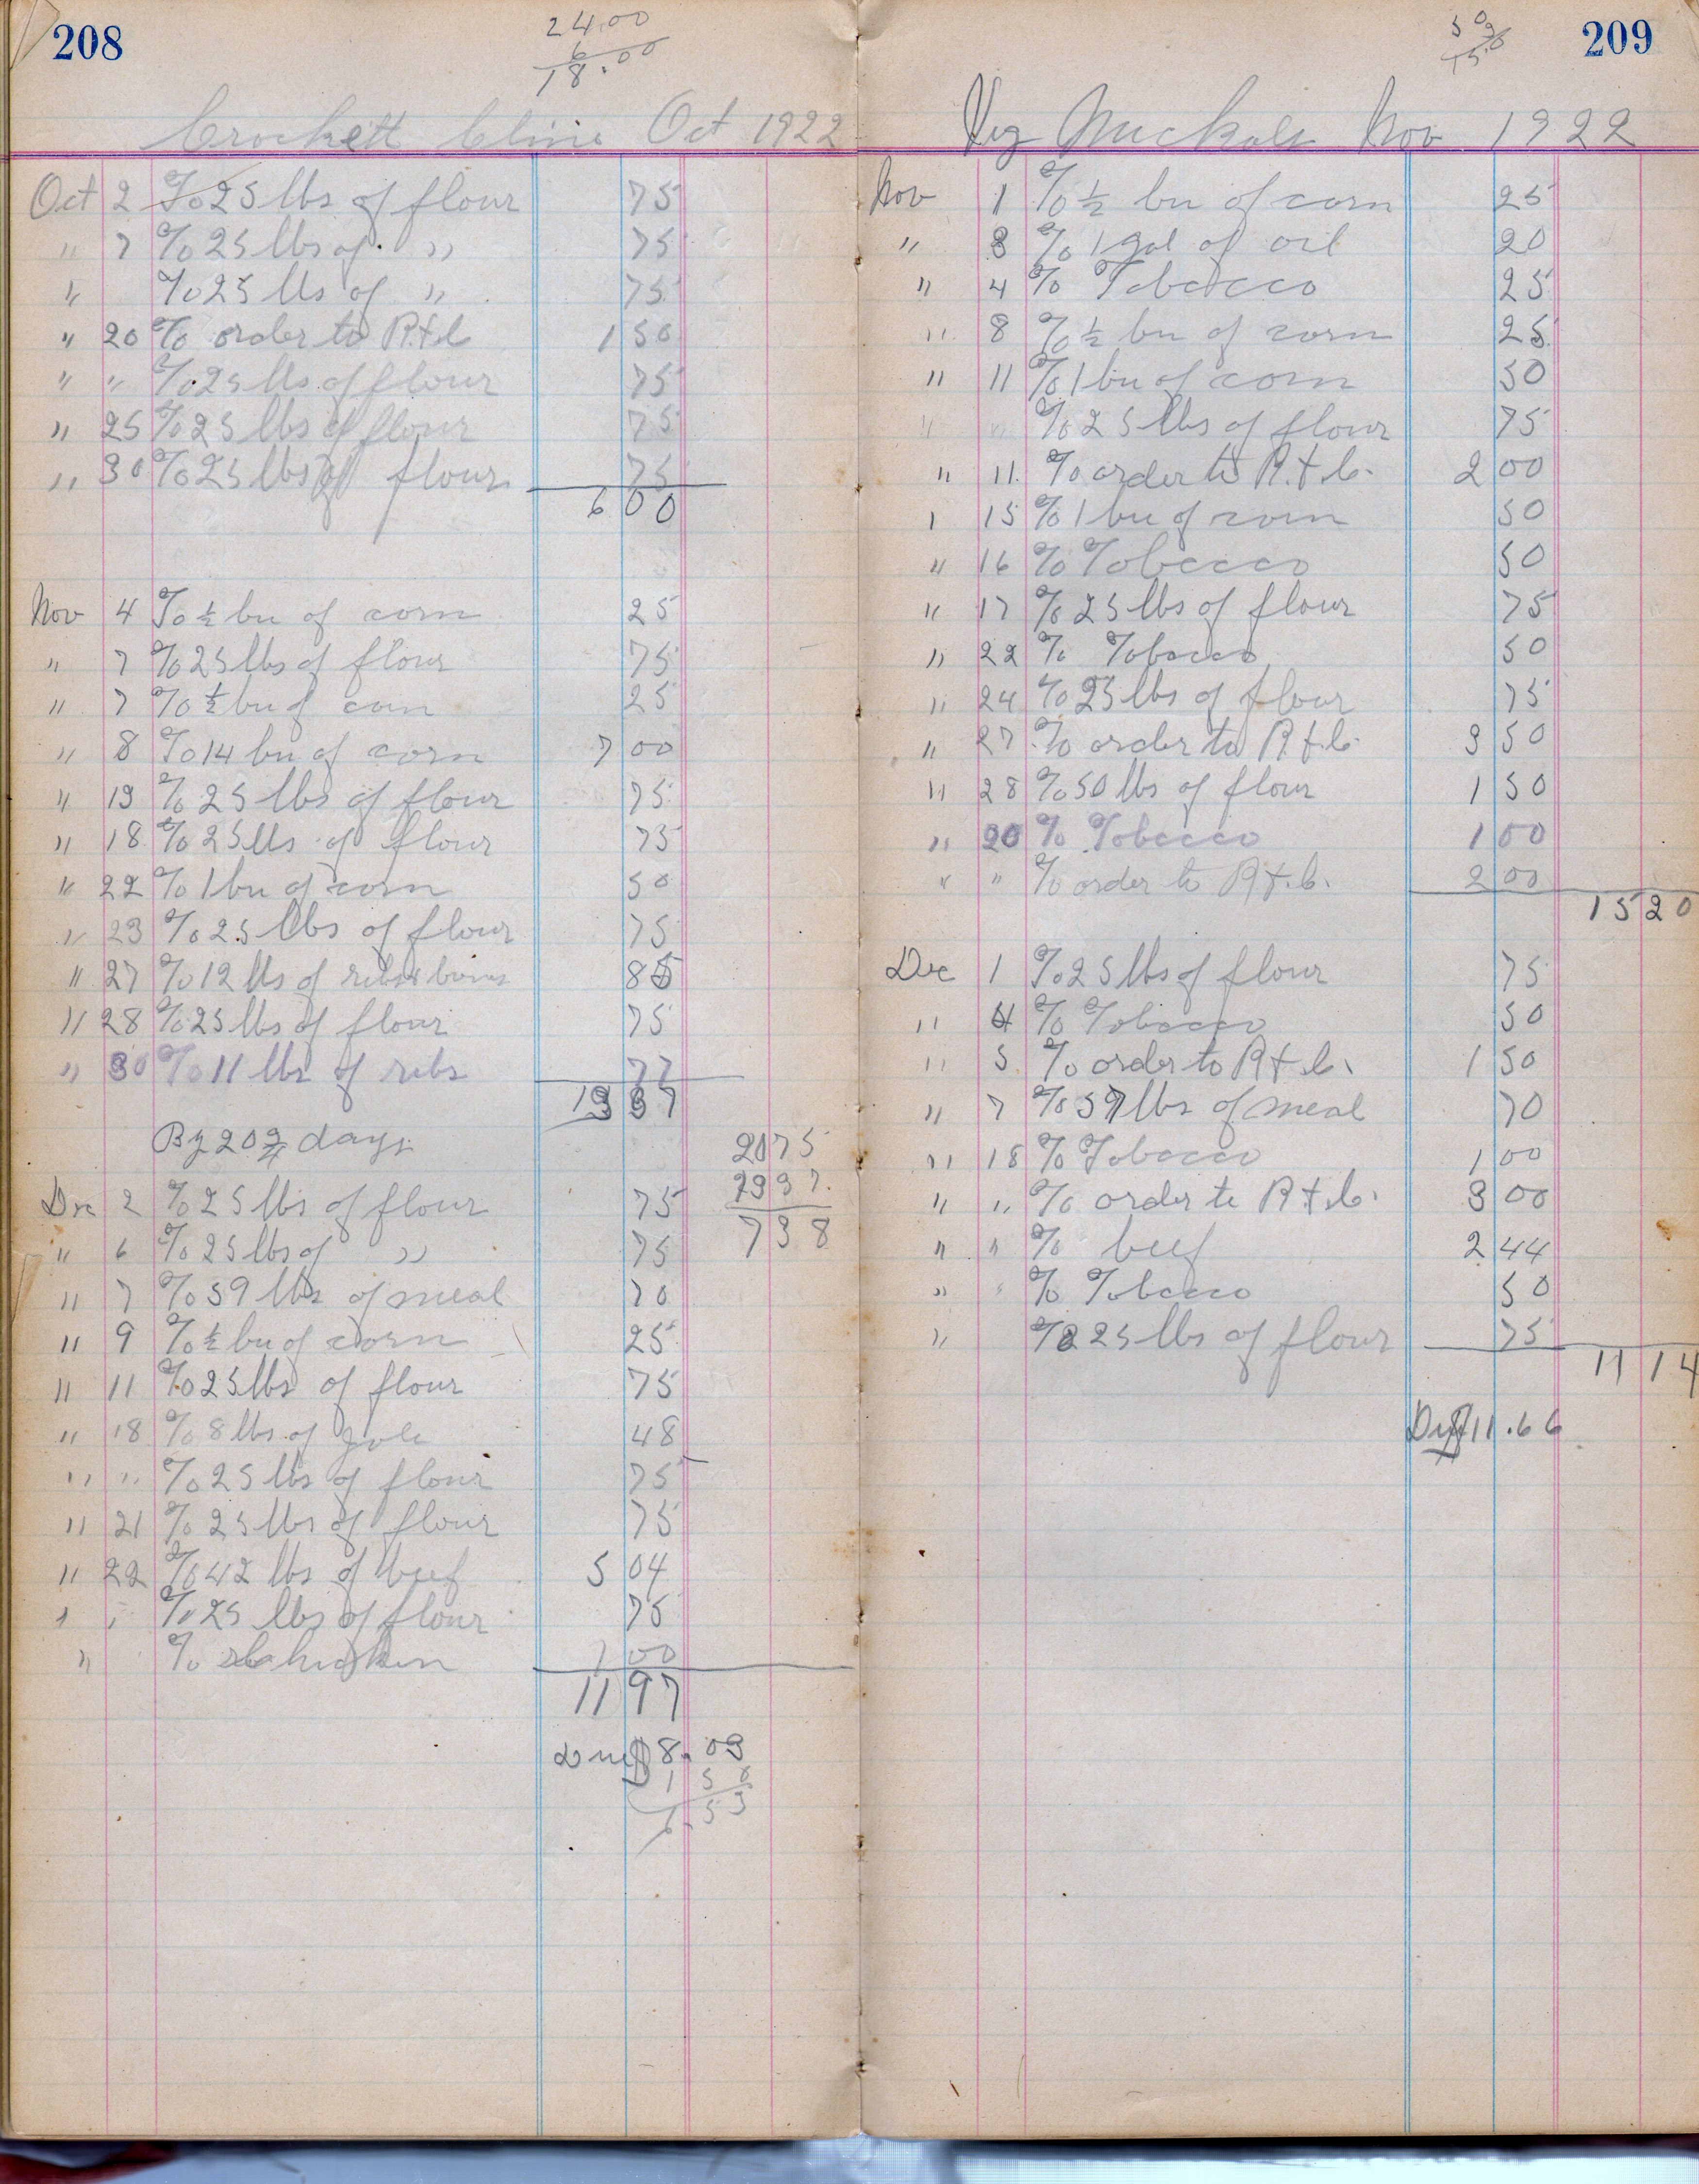 208
24.00
6.00
18.00
Crockett Cline Oct 1922
Oct 2 To 25 lbs of flour 75
" 7 To 25 lbs of " 75
" To 25 lbs of " 75
" 20 To order to R.+C 1 50
" " To 25 lbs of flour 75
" 25 To 25 lbs of flour 75
" 30 To 25 lbs of flour 75
6 00
Nov 4 To ½ bu of corn 25
" 7 To 25 lbs of flour 75
" 7 To ½ bu of corn 25
" 8 To 14 bu of corn 7 00
" 13 To 25 lbs of flour 75
" 18 To 25 lbs of flour 75
" 22 To 1 bu of corn 50
" 23 To 25 lbs of flour 75
" 27 To 12 lbs of ribs & bones 85
" 28 To 25 lbs of flour 75
" 30 To 11 lbs of ribs 77
13 37
By 20 ¾ days
20 75
13 37
7 38
Dec 2 To 25 lbs of flour 75
" 6 To 25 lbs of " 75
" 7 To 59 lbs of meal 70
" 9 To ½ bu of corn 25
" 11 To 25 lbs of flour 75
" 18 To 8 lbs of jole 48
" " To 25 lbs of flour 75
" 21 To 25 lbs of flour 75
" 22 To 42 lbs of beef 5 04
" " To 25 lbs of flour 75
" To chicken 1 00
11 97
Due 8.03
1 50
6.53
209
Nov 1922
Nov 1 To ½ bu of corn 25
" 3 To 1 gal of oil 20
" 4 To Tobacco 25
" 8 To ½ bu of corn 25
" 11 To 1 bu of corn 50
" " To 25 lbs of flour 75
" 11 To order to R.+C. 2 00
" 15 To 1 bu of corn 50
" 16 To Tobacco 50
" 17 To 25 lbs of flour 75
" 22 To Tobacco 50
" 24 To 25 lbs of flour 75
" 27 To order to R.+C. 3 50
" 28 To 50 lbs of flour 1 50
" 30 To Tobacco 1 00
" " To order to R.+C. 2 00
15 20
Dec 1 To 25 lbs of flour 75
" 4 To Tobacco 50
" 5 To order to R.+C. 1 50
" 7 To 57 lbs of meal 70
" 18 To Tobacco 1 00
" " To order to R.+C. 3 00
" " To beef 2 44
" " To Tobacco 50
" To 25 lbs of flour 75
11 14
Due 11.66